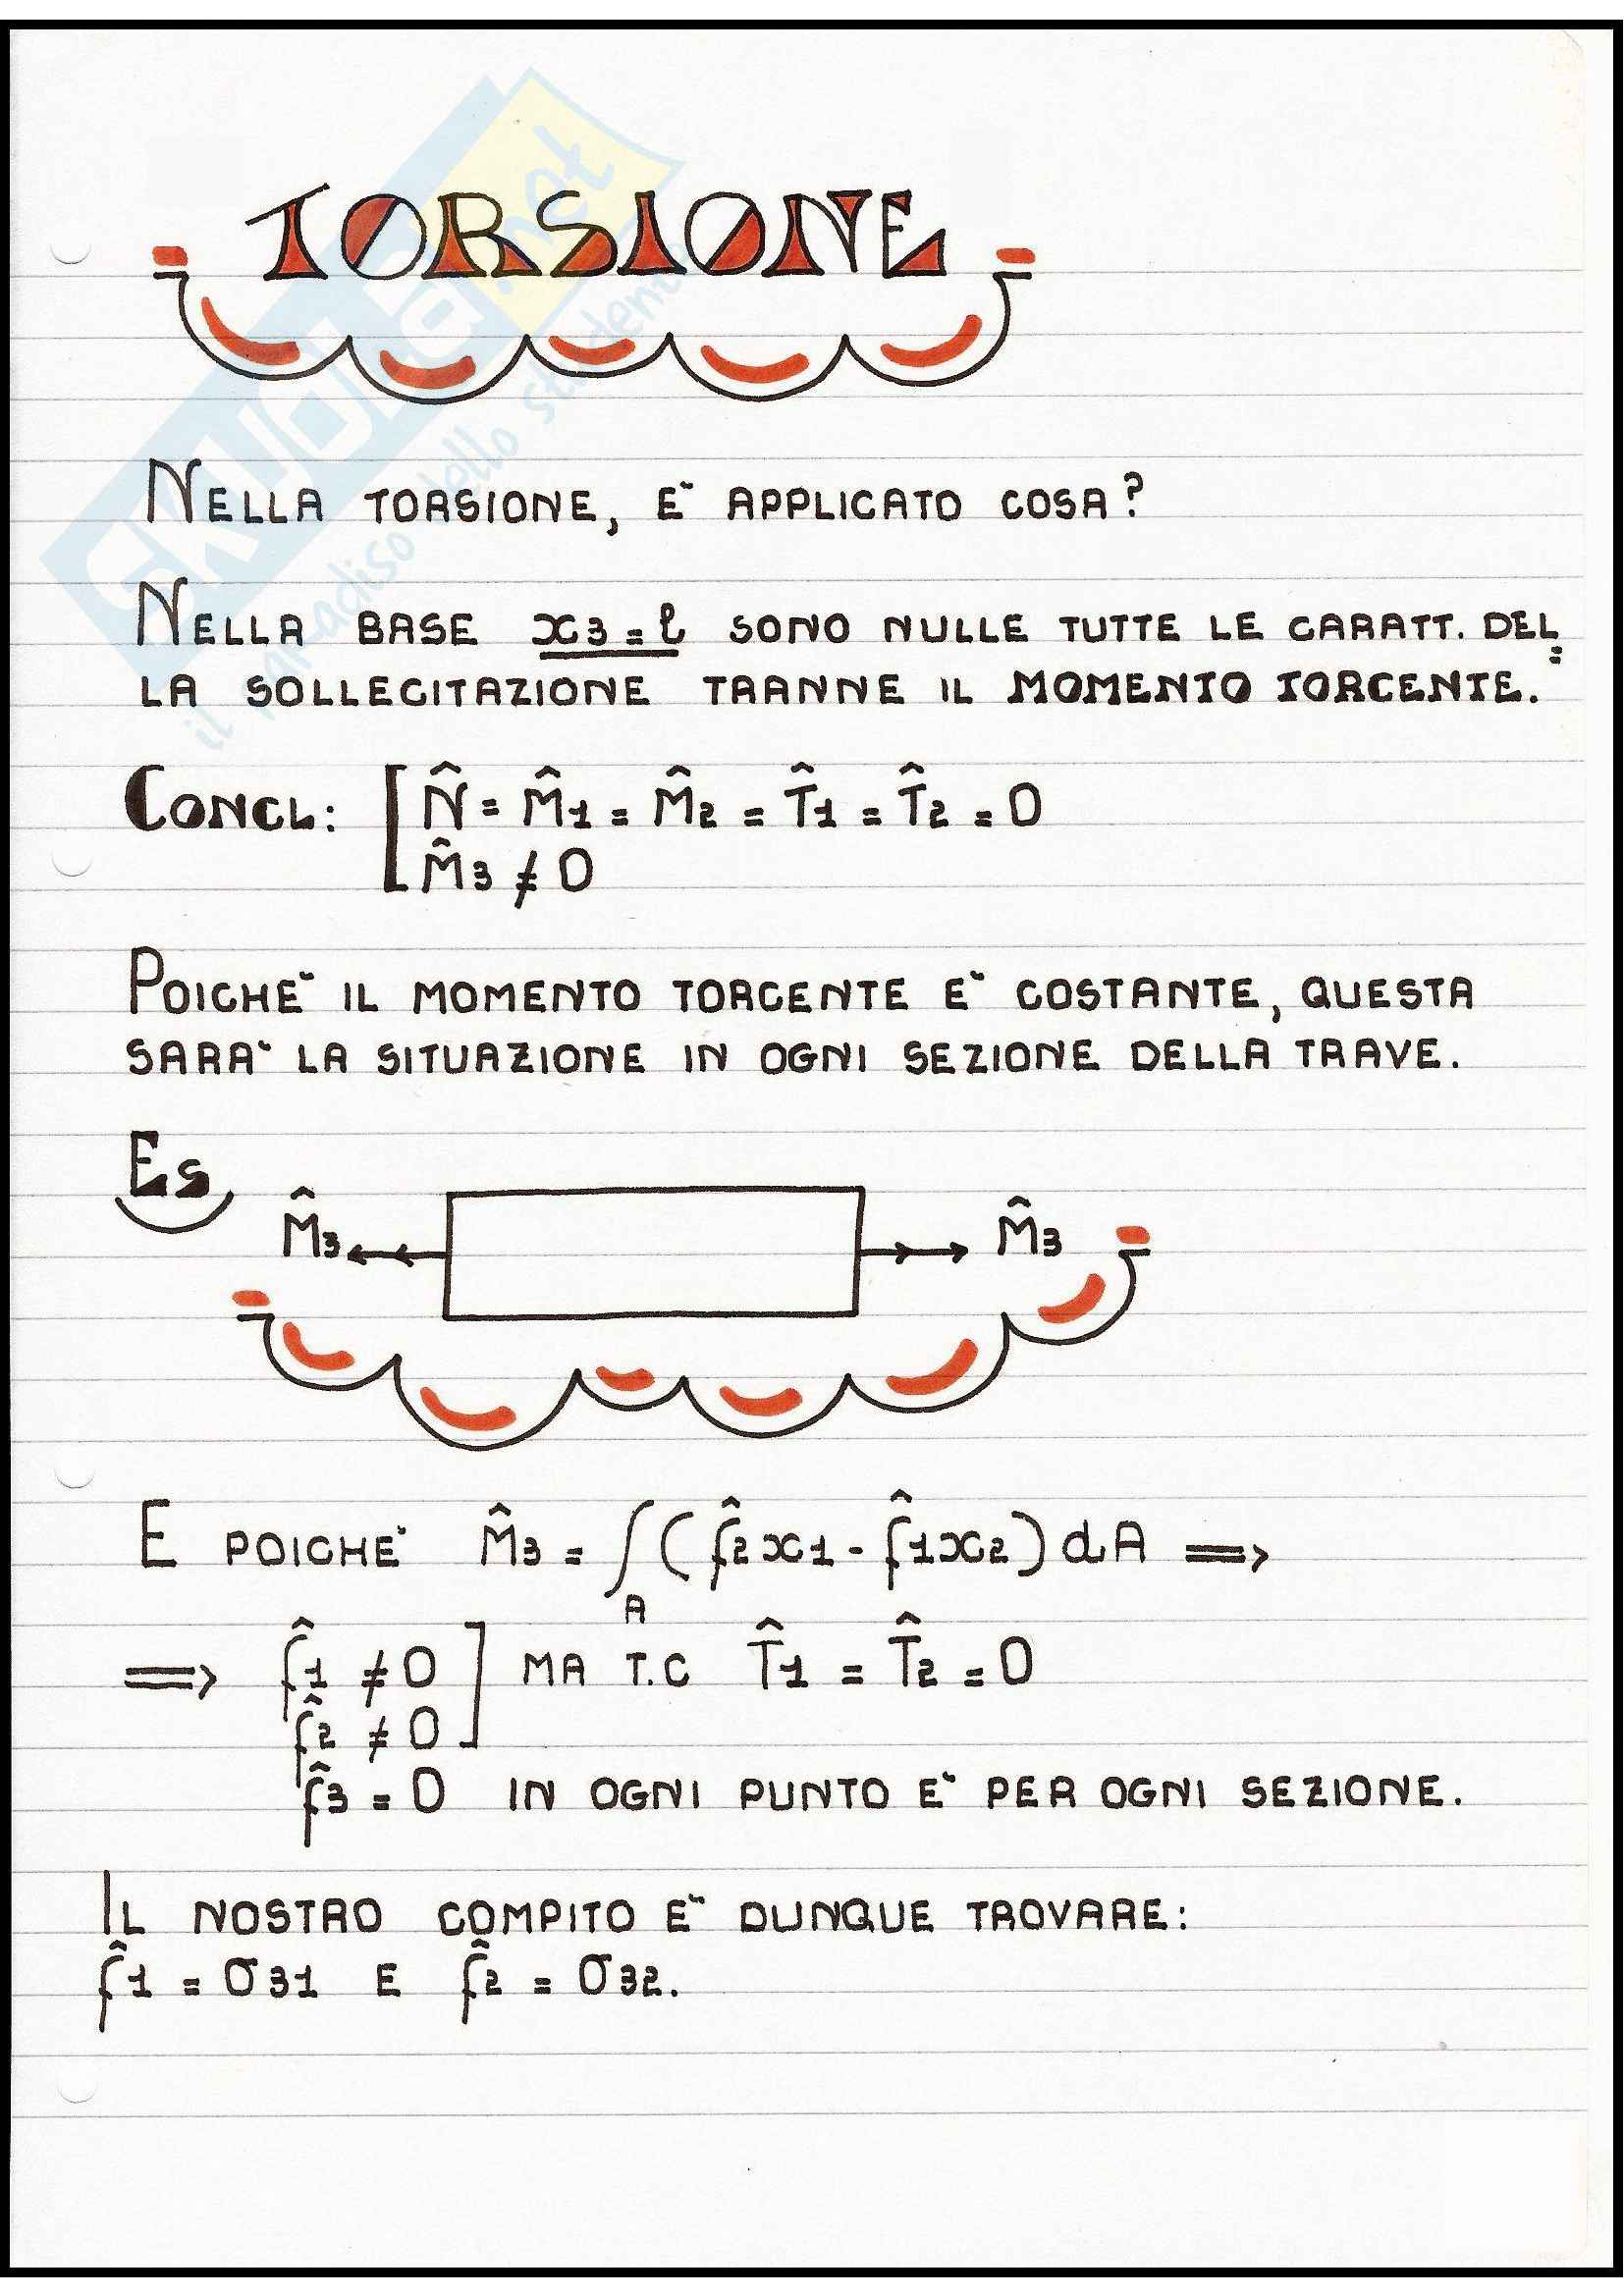 TORSIONE
NELLA TORSIONE, E` APPLICATO COSA?
NELLA BASE x3 = l SONO NULLE TUTTE LE CARATT. DEL=
LA SOLLECITAZIONE TRANNE IL MOMENTO TORCENTE.
CONCL: [ N̂ = M̂1 = M̂2 = T̂1 = T̂2 = 0
M̂3 ≠ 0
POICHE` IL MOMENTO TORCENTE E` COSTANTE, QUESTA
SARA` LA SITUAZIONE IN OGNI SEZIONE DELLA TRAVE.
ES
M̂3 M̂3
E POICHE` M̂3 = ∫A (f̂2x1 - f̂1x2) dA ⟹
⟹ f̂1 ≠ 0 ] MA T.C T̂1 = T̂2 = 0
f̂2 ≠ 0
f̂3 = 0 IN OGNI PUNTO E` PER OGNI SEZIONE.
IL NOSTRO COMPITO E` DUNQUE TROVARE:
f̂1 = σ31 E f̂2 = σ32.
SKUOLA.net
il paradiso dello studente